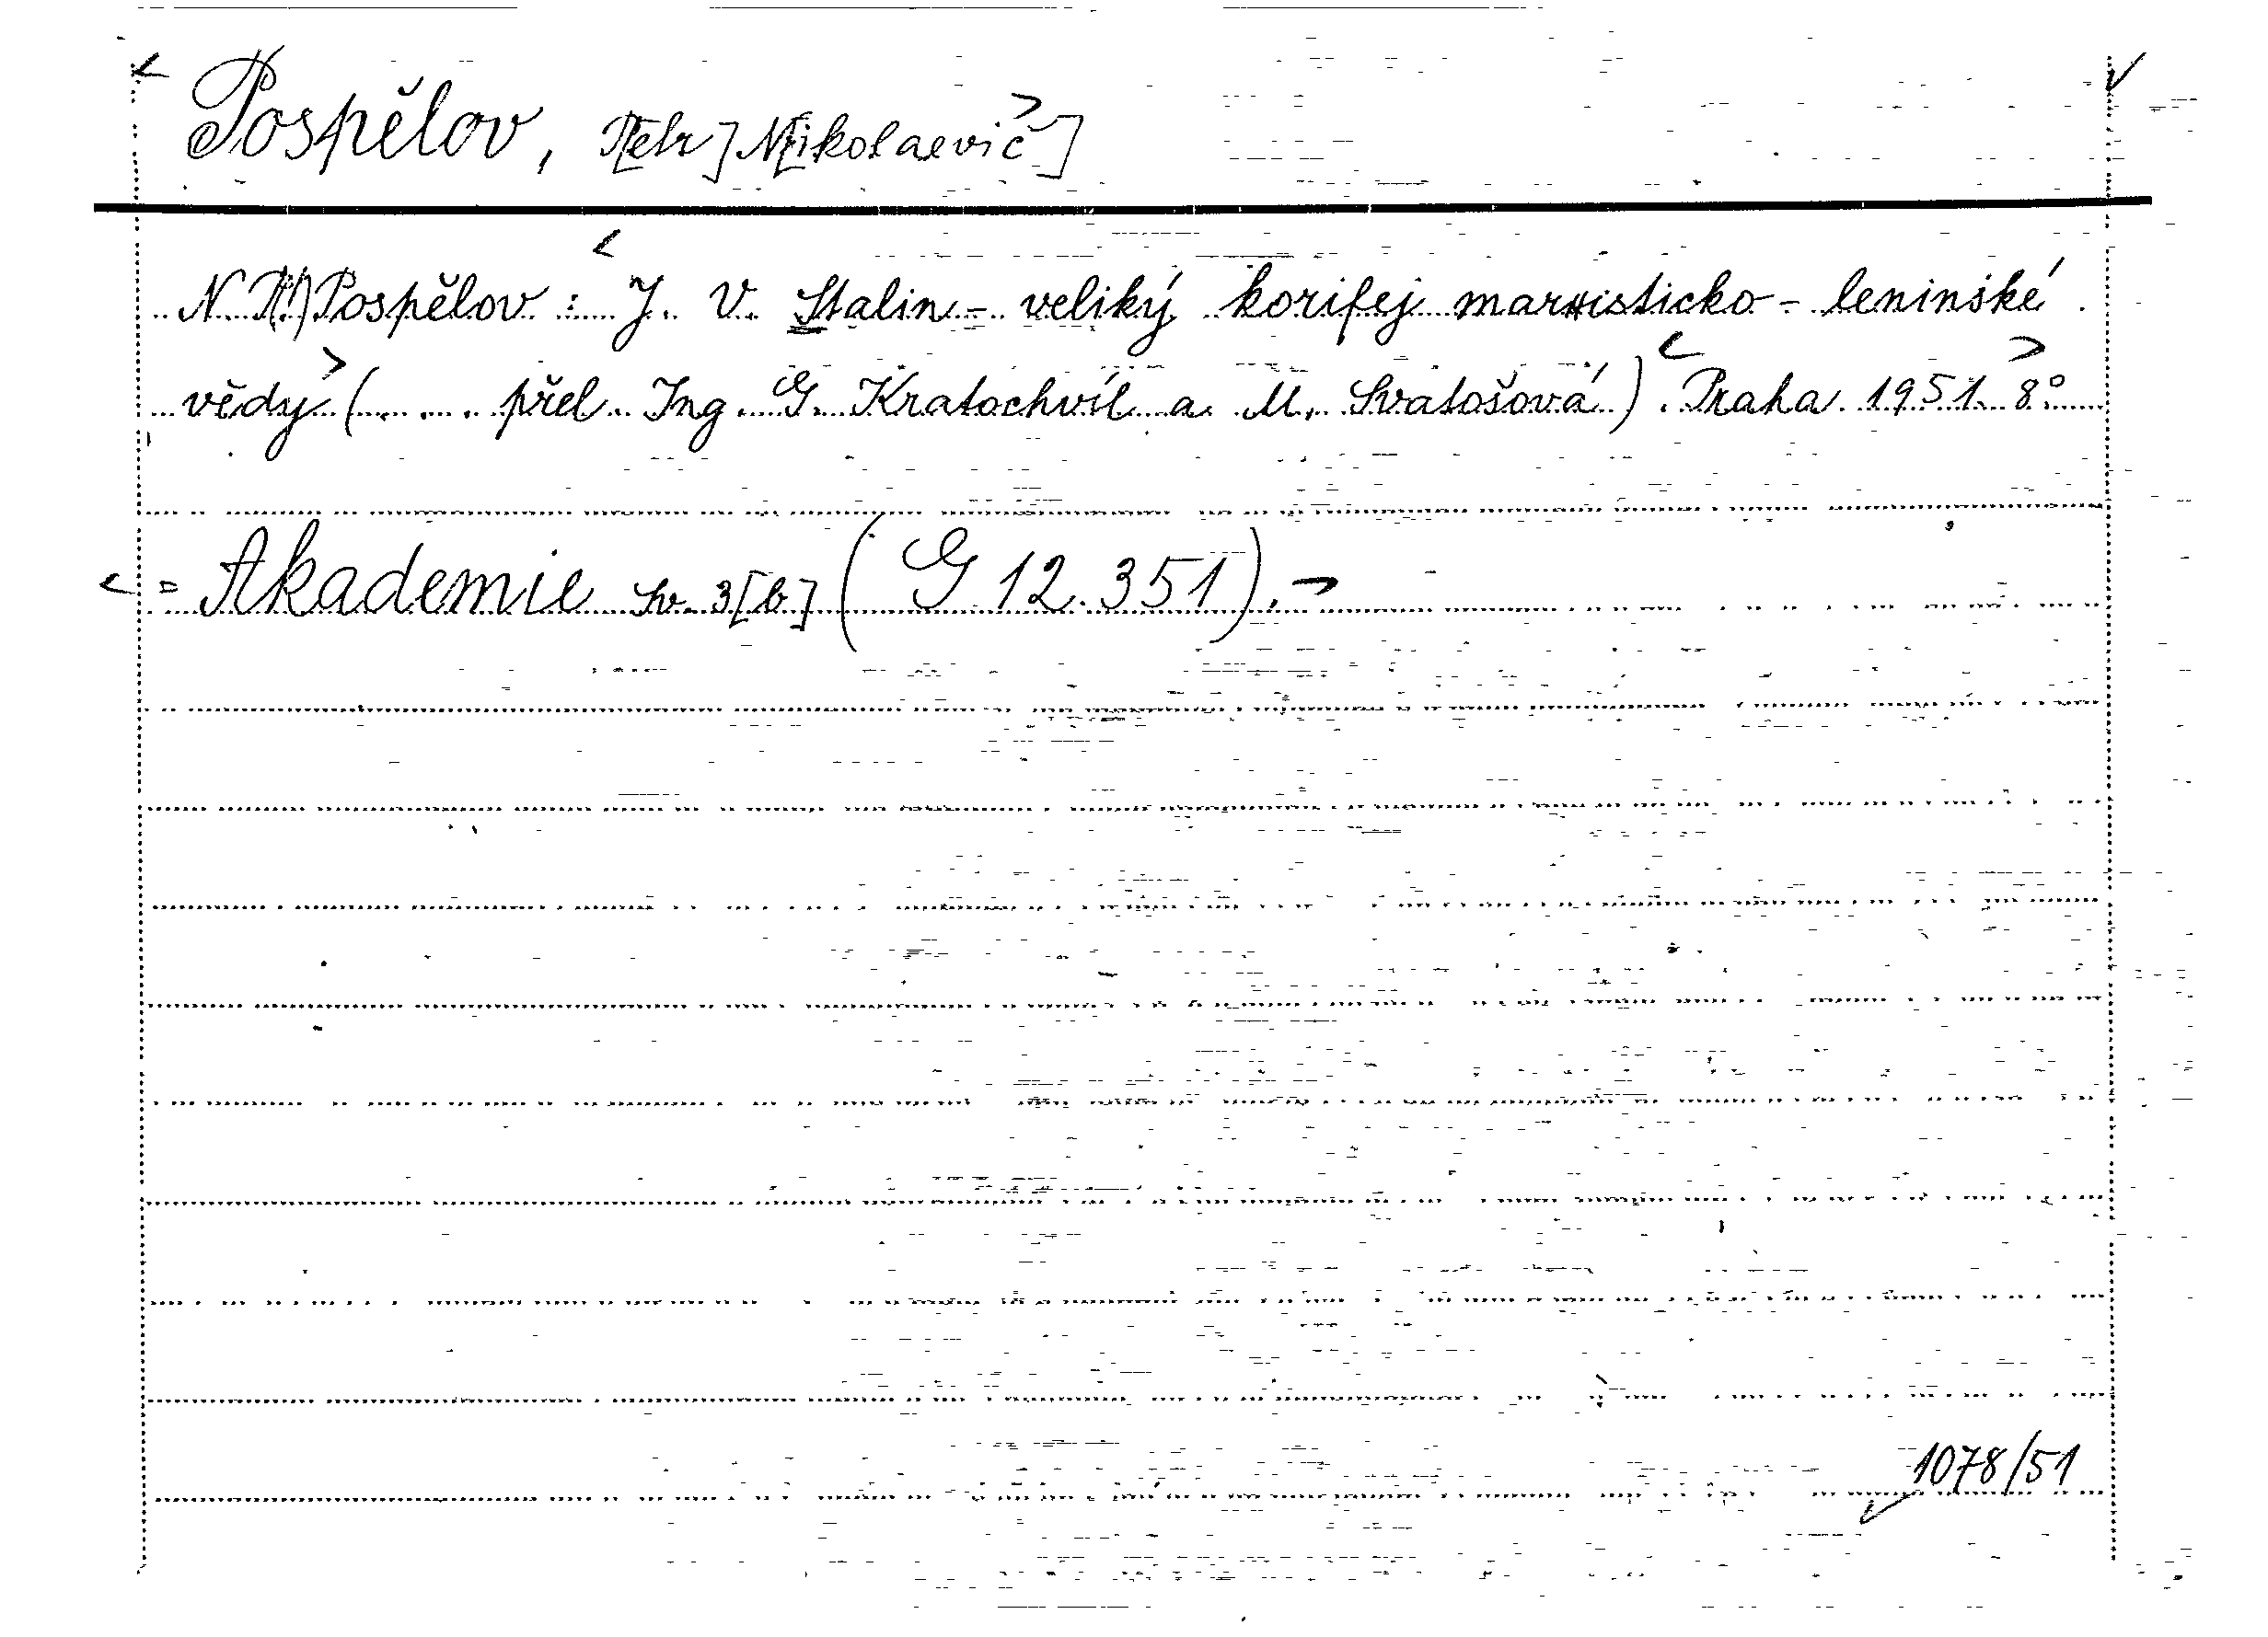 Pospělov, P[etr] N[ikolaevič]
N. P(!) Pospělov: J. V. Stalin - veliký korifej marxisticko - leninské
vědy (.... přel. Ing. G. Kratochvíl a M. Svatošová). Praha 1951. 8°
= Akademie sv. 3[b] (G 12.351).
1078/51